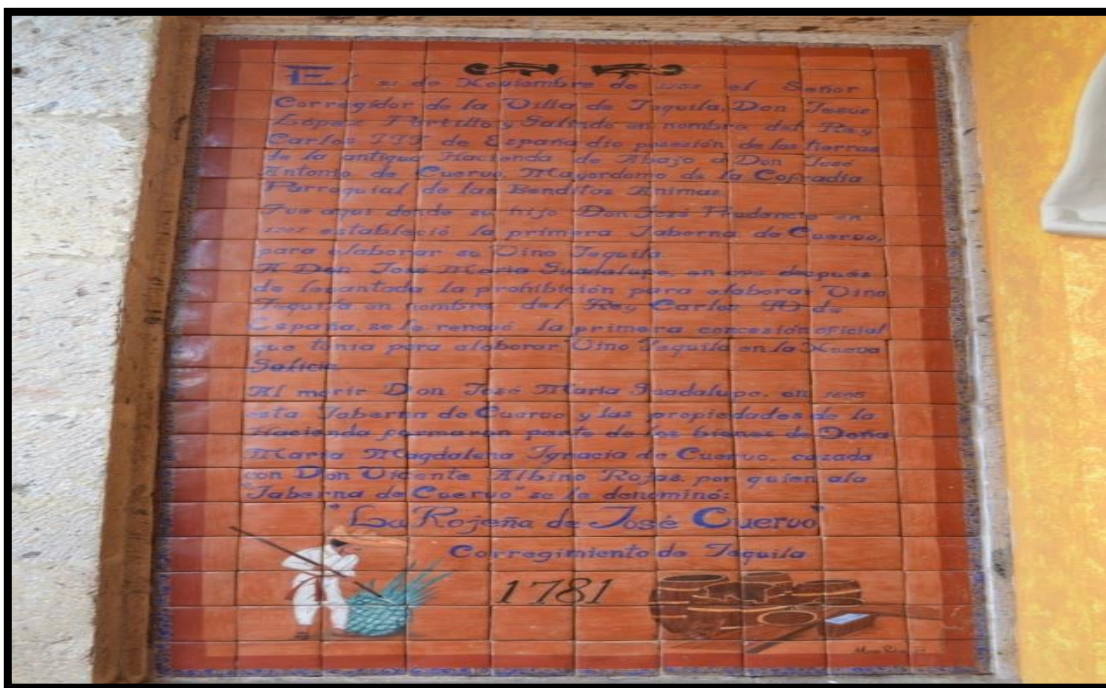 El de Noviembre de el Señor
Corregidor de la Villa de Tequila, Don Jesus
López Portillo y Galindo en nombre del Rey
Carlos III de España dio posesión de las tierras
de la antigua Hacienda de Abajo a Don José
Antonio de Cuervo, Mayordomo de la Cofradia
Parroquial de las Benditas Animas
Fue aqui donde su hijo Don José Prudencio en
estableció la primera Taberna de Cuervo,
para elaborar su Vino Tequila
A Don José Maria Guadalupe, en después
de levantada la prohibición para elaborar Vino
Tequila en nombre del Rey Carlos IV de
España, se le renovó la primera concesión oficial
que tenia para elaborar Vino Tequila en la Nueva
Galicia
Al morir Don José Maria Guadalupe, en
esta Taberna de Cuervo y las propiedades de la
Hacienda formaron parte de los bienes de Doña
Maria Magdalena Ignacia de Cuervo, casada
con Don Vicente Albino Rojas, por quien a la
Taberna de Cuervo" se le denominó:
"La Rojeña de José Cuervo"
Corregimiento de Tequila
1781